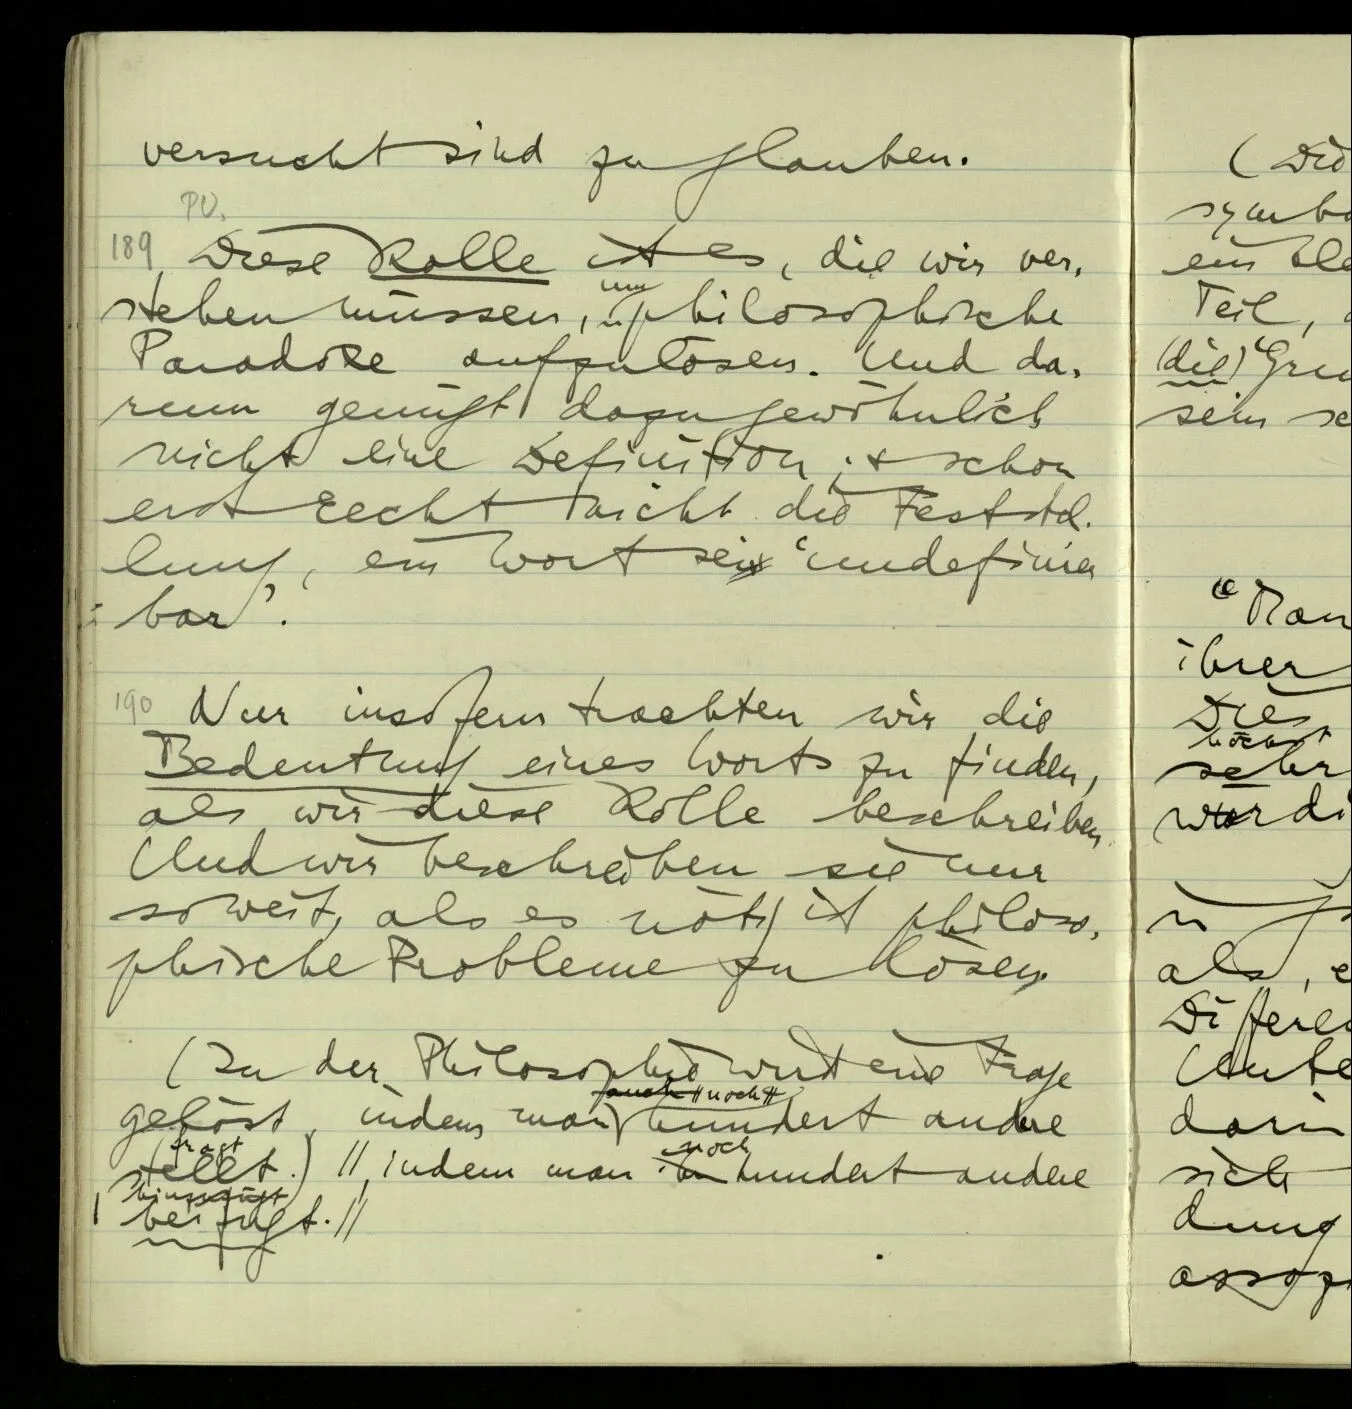 versucht sind zu glauben.
PU.
189 Diese Rolle ist es, die wir ver-
stehen müssen, um philosophische
Paradoxe aufzulösen. Und da-
rum genügt dazu gewöhnlich
nicht eine Definition; & schon
erst recht nicht die Feststel-
lung, ein Wort sei 'undefinier
bar'.
190 Nur insofern trachten wir die
Bedeutung eines Worts zu finden,
als wir diese Rolle beschreiben.
Und wir beschreiben sie nur
soweit, als es nötig ist philoso-
phische Probleme zu lösen.
(In der Philosophie wird eine Frage
auch // noch //
gelöst, indem man hundert andre
fragt
stellt.) //, indem man noch hundert andere
hinzufügt
beifügt. //
(Die
symbo
ein Ble
Teil,
(die) 'Gru
sein
"Man
ihrer
Dies
höchst
sehr
würdi
als,
Differen
Unte
darin
sich
dung
assozi